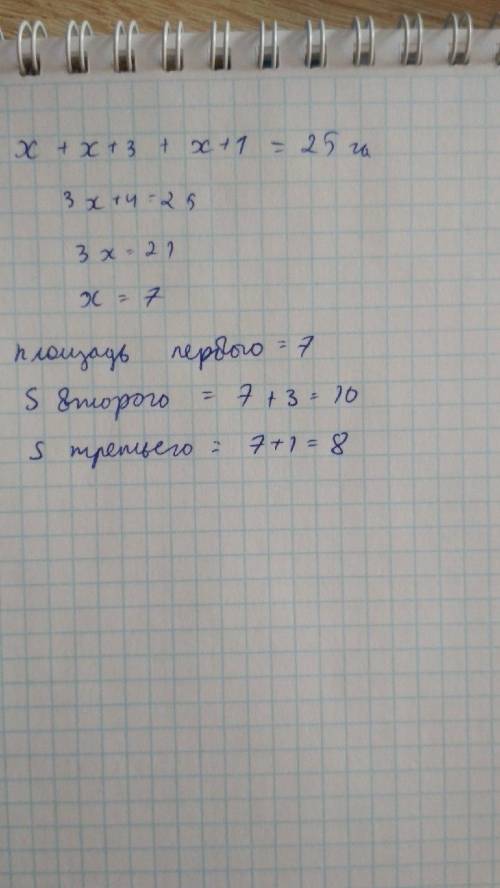 x + x + 3 + x + 1 = 25 га
3x + 4 = 25
3x = 21
x = 7
площадь первого = 7
S второго = 7 + 3 = 10
S третьего = 7 + 1 = 8